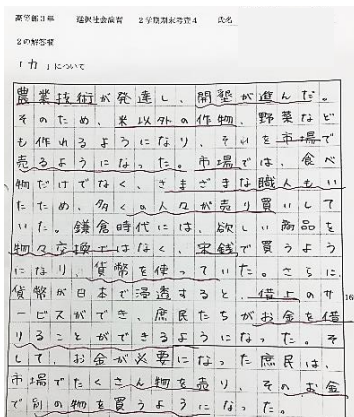 高等部3年　選択社会演習　2学期期末考査4　氏名
2の解答欄
「カ」について
農業技術が発達し、開墾が進んだ。
そのため、米以外の作物、野菜など
も作れるようになり、それを市場で
売るようになった。市場では、食べ
物だけでなく、さまざまな職人もい
たため、多くの人々が売り買いして
いた。鎌倉時代には、欲しい商品を
物々交換ではなく、宋銭で買うよう
になり、貨幣を使っていた。さらに、
貨幣が日本で浸透すると、借上のサ
ービスができ、庶民たちがお金を借
りることができるようになった。そ
して、お金が必要になった庶民は、
市場でたくさん物を売り、そのお金
で別の物を買うようになった。